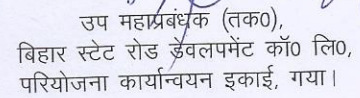 उप महाप्रबंधक (तक0),
बिहार स्टेट रोड डेवलपमेंट कॉ0 लि0,
परियोजना कार्यान्वयन इकाई, गया।